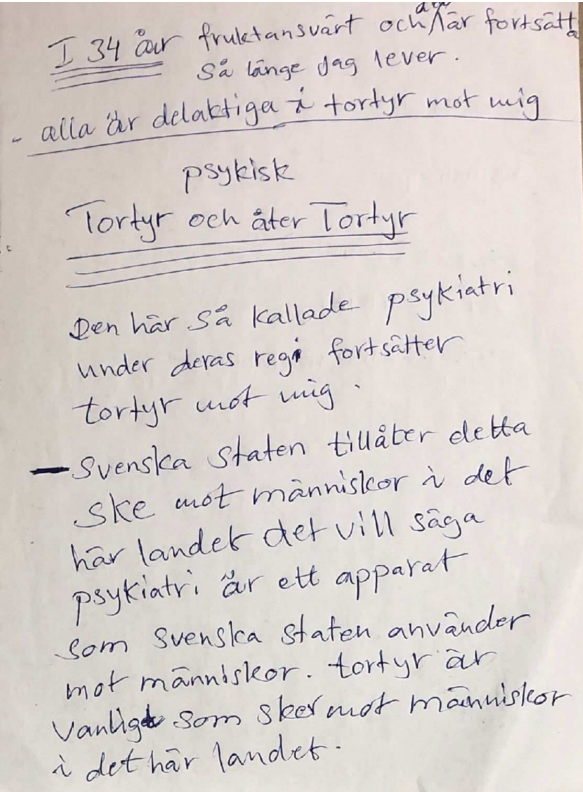 I 34 år fruktansvärt och där fortsätta
Så länge jag lever.
- alla är delaktiga i tortyr mot mig
psykisk
Tortyr och åter Tortyr
Den här så kallade psykiatri
under deras regi fortsätter
tortyr mot mig.
- Svenska staten tillåter detta
ske mot människor i det
här landet det vill säga
psykiatri är ett apparat
som svenska staten använder
mot människor. tortyr är
vanligt som sker mot människor
i det här landet.